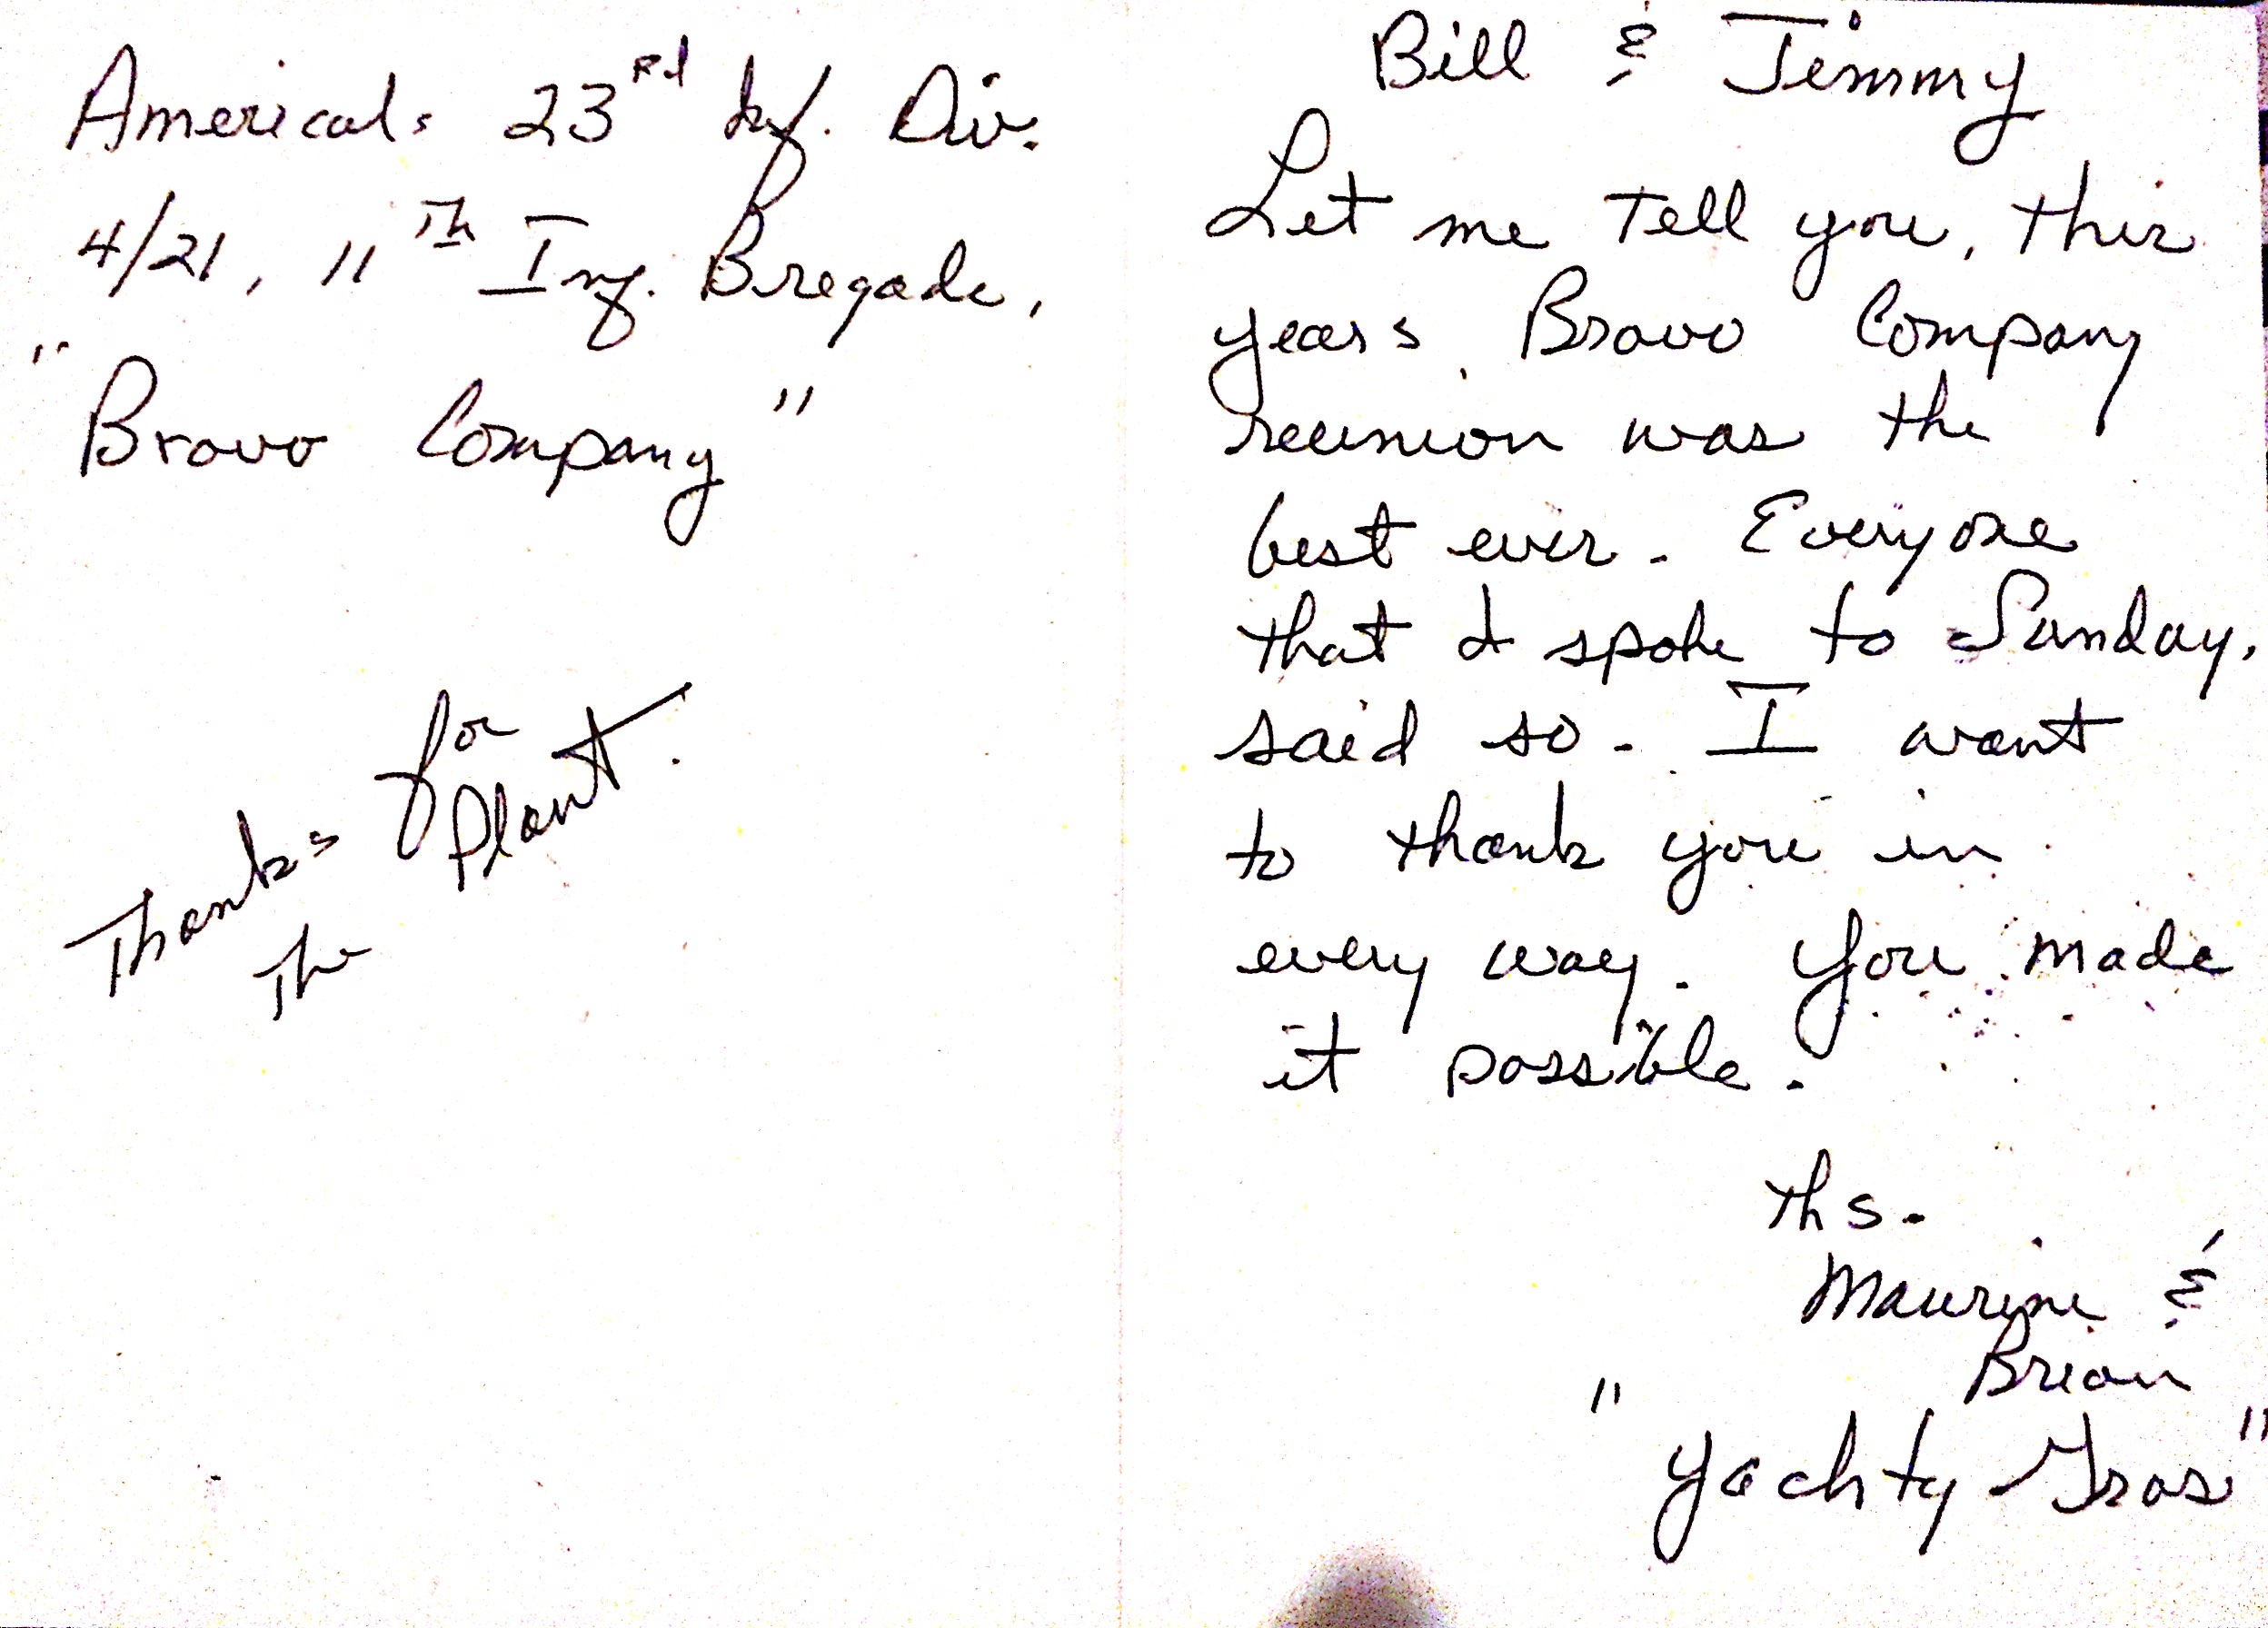 Americal. 23rd Inf. Div.
4/21, 11th Inf. Bregade,
"Bravo Company"
Thanks for
The Plant.
Bill & Jimmy
Let me Tell you, this
years Bravo Company
reunion was the
best ever. Everyone
that I spoke to Sunday,
said so. I want
to thank you in
every way. You made
it possible.
Ths.
Maurine &
Brian
"Yachty Gras"